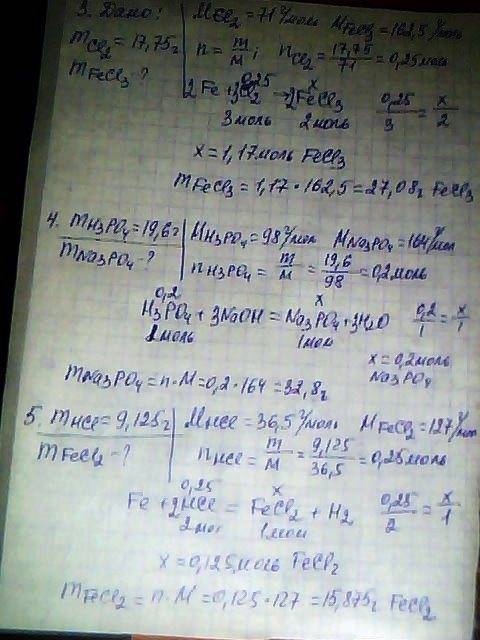 3. Дано:
mCl₂ = 17,75г
mFeCl₃ - ?
MCl₂ = 71 г/моль MFeCl₃ = 162,5 г/моль
n = m/M; nCl₂ = 17,75/71 = 0,25 моль
0,25 x
2Fe + 3Cl₂ → 2FeCl₃ 0,25/3 = x/2
3 моль 2 моль
x = 1,17 моль FeCl₃
mFeCl₃ = 1,17 · 162,5 = 27,08г FeCl₃
4. mH₃PO₄ = 19,6г
mNa₃PO₄ - ?
MH₃PO₄ = 98 г/моль MNa₃PO₄ = 164 г/моль
nH₃PO₄ = m/M = 19,6/98 = 0,2 моль
0,2 x
H₃PO₄ + 3NaOH = Na₃PO₄ + 3H₂O 0,2/1 = x/1
1 моль 1 моль
x = 0,2 моль
Na₃PO₄
mNa₃PO₄ = n · M = 0,2 · 164 = 32,8г
5. mHCl = 9,125г
mFeCl₂ - ?
MHCl = 36,5 г/моль MFeCl₂ = 127 г/моль
nHCl = m/M = 9,125/36,5 = 0,25 моль
0,25 x
Fe + 2HCl = FeCl₂ + H₂ 0,25/2 = x/1
2 моль 1 моль
x = 0,125 моль FeCl₂
mFeCl₂ = n · M = 0,125 · 127 = 15,875г FeCl₂